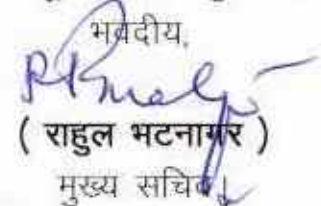 भवदीय,
( राहुल भटनागर )
मुख्य सचिव।